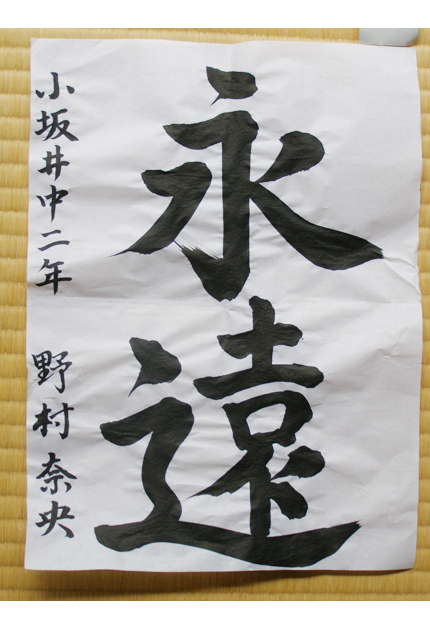 永遠
小坂井中二年 野村奈央